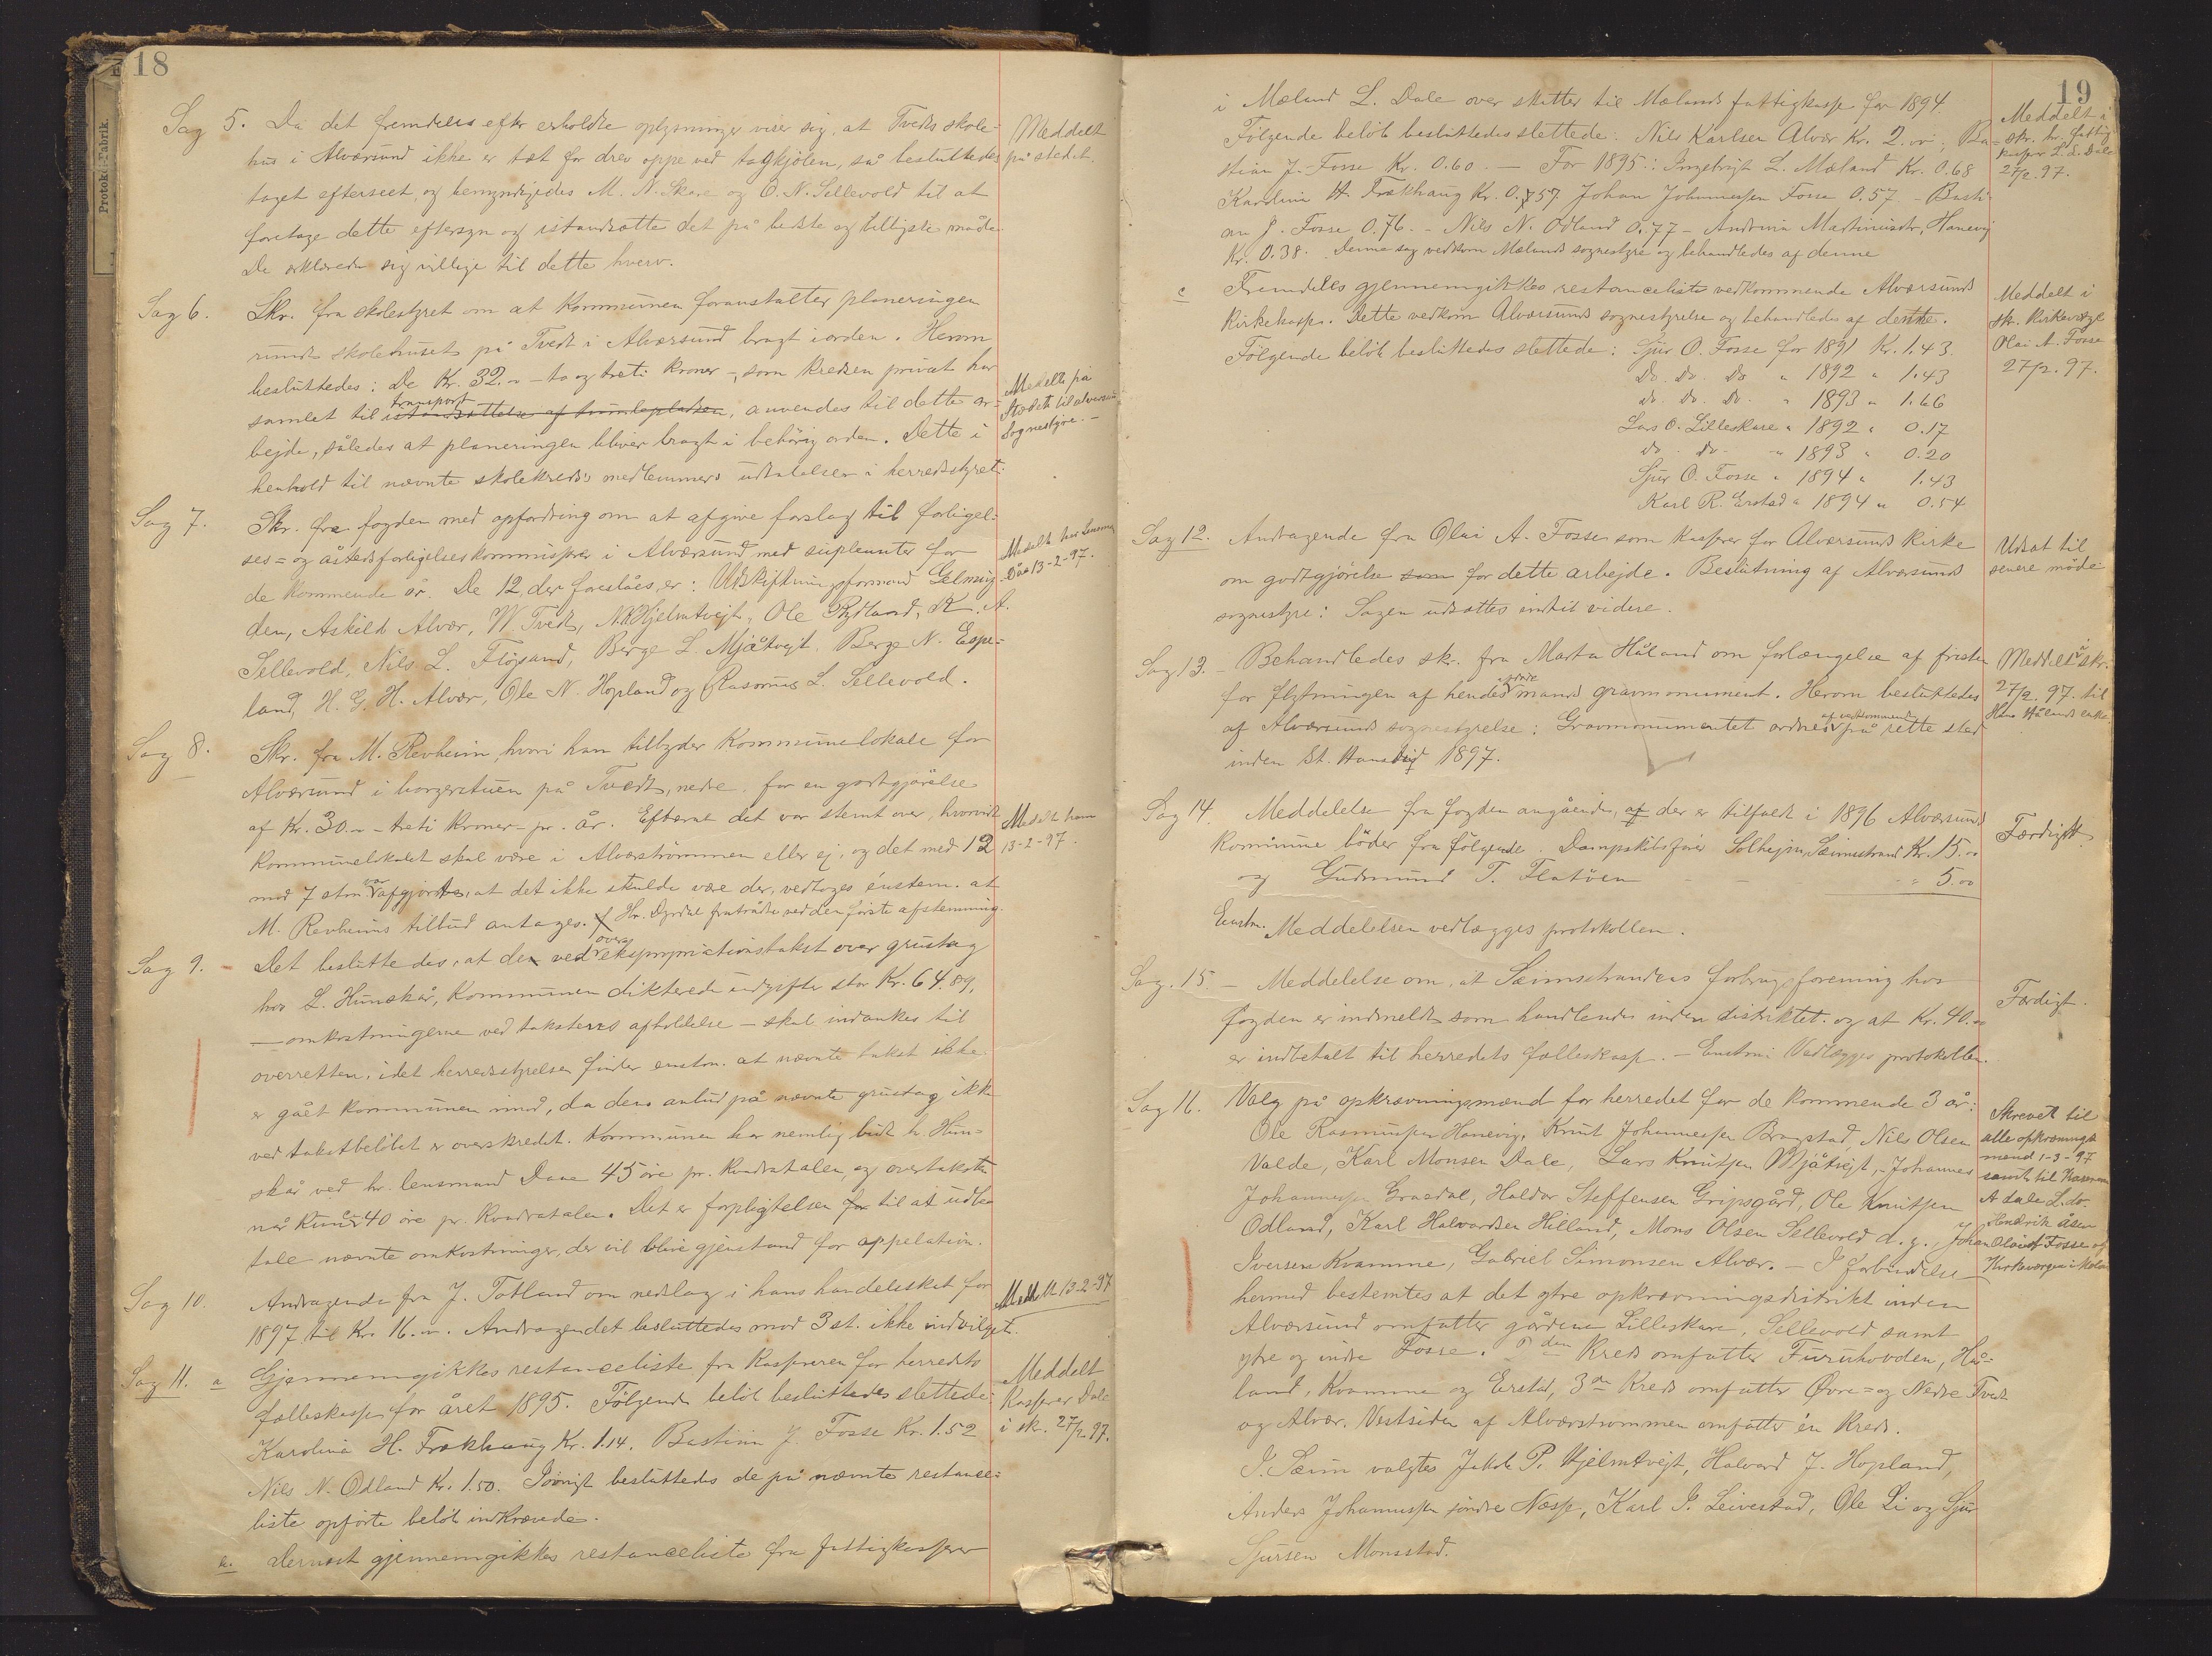 18
Sag 5. Da det fremdeles efter erholdte oplysninger viser sig, at Tvedts skole-
hus i Alværsund ikke er tæt for drev oppe ved tagkjölen, så besluttedes
taget efterseet, og bemyndigedes M. N. Skare og O. N. Sellevold til at
foretage dette eftersyn og istandsætte det på bedste og billigste måde.
De erklærede sig villige til dette hverv.
Meddelt
på stedet.
Sag 6. Skr. fra skolestyret om at kommunen foranstalter planeringen
rundt skolehuset på Tvedt i Alværsund bragt i orden. Herom
besluttedes: De Kr. 32.00 - to og treti kroner -, som kredsen privat har
samlet til transport istandsættelse af tumlepladsen, anvendes til dette ar-
bejde, således at planeringen bliver bragt i behörig orden. Dette i
henhold til nævnte skolekreds's medlemmers udtalelser i herredsstyret.
Meddelt på
Stedet til alversund
Sognestyre. -
Sag 7. Skr. fra fogden med opfordring om at afgive forslag til forligel-
ses- og åstedsforligelseskommissærer i Alværsund med supleanter for
de kommende år. De 12, der foreslåes, er: Udskiftningsformand Gelmuy-
den, Askild Alvær, W. Tvedt, N. Hjelmtvejt, Ole Rydland, K. A.
Sellevold, Nils L. Flöjsand, Berge L. Mjåtvejt, Berge N. Espe-
land, H. G. H. Alvær, Ole N. Hopland og Rasmus L. Sellevold.
Meddelt hr Lensmand
Dåe 13-2-97.
Sag 8. Skr. fra M. Revheim, hvori han tilbyder kommunelokale for
Alværsund i borgerstuen på Tvedt, nedre for en godtgjörelse
af Kr. 30.00 - treti kroner - pr. år. Efterat det var stemt over, hvorvidt
kommunelokalet skal være i Alværströmmen eller ej, og det med 12
mod 7 stm. var afgjort, at det ikke skulde være der, vedtoges énstem. at
M. Revheims tilbud antages. Hr. Dyrdal fratrådte ved den förste afstemning.
Meddelt ham
13-2-97.
Sag 9. - Det besluttedes, at de ved over ekspropriationstakst over grustag
hos L. Hunskår, kommunen dikterede udgifter stor Kr. 64.89,
- omkostningerne ved takstens afholdelse - skal indankes til
overretten, idet herredsstyrelsen finder enstm. at nævnte takst ikke
er gået kommunen imod, da dens anbud på nævnte grustag ikke
ved takstbelöbet er overskredet. Kommunen har nemlig budt h. Hun-
skår ved hr. lensmand Daae 45 öre pr. kvadratalen, og overtaksten
når kun 40 öre pr. kvadratalen. Det er forpligtelsen for til at udbe-
tale nævnte omkostninger, der vil blive gjenstand for appelation.
Sag 10. Andragende fra J. Totland om nedslag i hans handelsskat for
1897 til Kr. 16.00. Andragendet besluttedes mod 3 st. ikke indvilget.
Meddelt 13-2-97
Sag 11. a Gjennemgikkes restanceliste fra kassereren for herredets
fælleskasse for året 1895. Fölgende belöb besluttedes slettede:
Karolina H. Frækhaug Kr. 1.14. Bastian J. Fosse Kr. 1.52
Nils N. Odland Kr. 1.50. Iövrigt besluttedes de på nævnte restance-
liste opförte belöb indkrævede.
Meddelt
Kasserer Dale
i sk. 27/2 97.
b. Dernæst gjennemgikkes restanceliste fra fattigkasserer
19
i Mæland L. Dale over skatter til Mælands fattigkasse for 1894.
Fölgende belöb besluttedes slettede: Nils Karlsen Alvær Kr. 2.00; Ba-
stian J. Fosse Kr. 0.60. - For 1895: Ingebrigt L. Mæland Kr. 0.68
Karolina H. Frækhaug Kr. 0.57 Johan Johannessen Fosse 0.57 - Basti-
an J. Fosse 0.76. - Nils N. Odland 0.77 - Andrina Martinusdr, Hanevig
Kr. 0.38. Denne sag vedkom Mælands sognestyre og behandledes af denne
Meddelt i
skr. hr. fattig
kasserer L. L. Dale
27/2. 97.
c Fremdeles gjennemgikkes restanceliste vedkommende Alværsunds
kirkekasse. Dette vedkom Alværsunds sognestyrelse og behandledes af denne.
Fölgende belöb besluttedes slettede: Sjur O. Fosse for 1891 Kr. 1.43.
Do. Do. Do " 1892 " 1.43
Do. Do. Do. " 1893 " 1.66
Lars O. Lilleskare " 1892 " 0.17
Do - Do - " 1893 " 0.20
Sjur O. Fosse " 1894 " 1.43
Karl R. Erstad " 1894 " 0.54
Meddelt i
skr. Kirkeværge
Olai A. Fosse
27/2. 97.
Sag 12. Andragende fra Olai A. Fosse som kasserer for Alværsunds kirke
om godtgjörelse som for dette arbejde. Beslutning af Alværsunds
sognestyre: Sagen udsættes indtil videre.
Udsat til
senere möde
Sag 13. - Behandledes skr. fra Marta Håland om forlængelse af fristen
for flytningen af hendes döde mands gravmonument. Herom besluttedes
af Alværsunds sognestyrelse: Gravmonumentet ordnes af vedkommende på rette sted
inden St. Hanstid 1897.
Meddelt i skr.
27/2. 97. til
Hans Hålands enke
Sag 14. Meddelelse fra fogden angående, at der er tilfaldt i 1896 Alværsunds
Kommune böder fra fölgende. Dampskibsförer Solhejm, Sæimstrand Kr. 15.00
og Gudmund T. Flatöen - - " 5.00
Enstm. Meddelelsen vedlægges protokollen.
Færdigt.
Sag. 15. - Meddelelse om, at Sæimstrandens forbrugsforening hos
fogden er indmeldt som handlende inden distriktet og at Kr. 40.00
er indbetalt til herredets fælleskasse. - Enstm: Vedlægges protokollen.
Færdigt.
Sag 16. Valg på opkrævningsmænd for herredet for de kommende 3 år:
Ole Rasmussen Hanevig, Knut Johannessen Bragstad, Nils Olsen
Valde, Karl Monsen Dale, Lars Knutsen Mjåtvejt, - Johannes
Johannessen Grasdal, Haldor Steffensen Gripsgård, Ole Knutsen
Odland, Karl Halvardsen Hilland, Mons Olsen Sellevold d.y., Johan
Iversen Kvamme, Gabriel Simonsen Alvær. - I forbindelse
hermed bestemtes at det ytre opkrævningsdistrikt inden
Alværsund omfatter gårdene Lilleskare, Sellevold samt
ytre og indre Fosse. den Kreds omfatter Furuhovden, Hå-
land, Kvamme og Erstad, 3de Kreds omfatter Øvre- og Nedre Tvedt
og Alvær. Vestsiden af Alværstrømmen omfatter én Kreds.
I Sæim valgtes Jakob P. Hjelmtvejt, Halvard J. Hopland,
Anders Johannessen söndre Næsse, Karl I. Leivestad, Ole Li og Sjur
Sjursen Monsstad.
Skrevet til
alle opkrævnings
mænd 1-3-97
samt til Kasserer
A dale L. do.
Hendrik Åsen
Olai A Fosse og
Kirkeværgen i Mæland